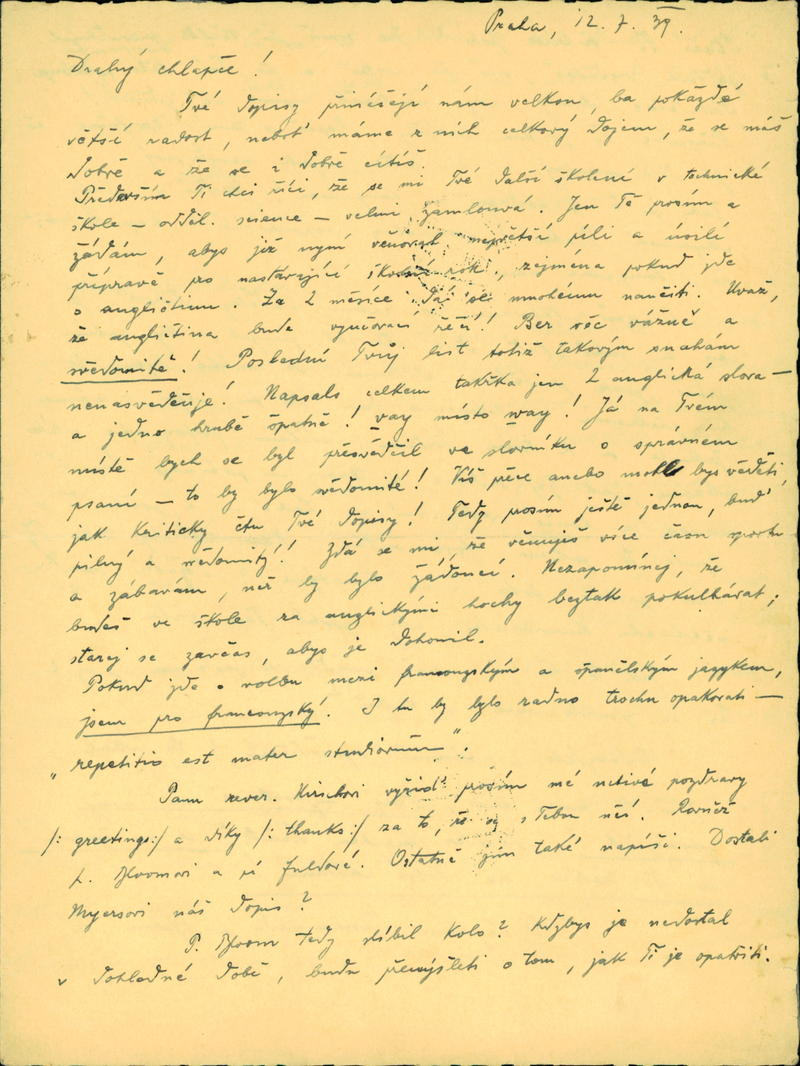 Praha, 12. 7. 39.
Drahý chlapče!
Tvé dopisy přinášejí nám velkou, ba pokaždé
větší radost, neboť máme z nich celkový dojem, že se máš
dobře a že se i dobře cítíš.
Především Ti chci říci, že se mi Tvé další školení v technické
škole – odděl. science – velmi zamlouvá. Jen Tě prosím a
žádám, abys již nyní věnoval největší píli a úsilí
přípravě pro nastávající školní rok, zejména pokud jde
o angličtinu. Za 2 měsíce dá se mnohému naučiti. Uvaž,
že angličtina bude vyučovací řečí! Ber věc vážně a
svědomitě! Poslední Tvůj list totiž takovým snahám
nenasvědčuje! Napsals celkem takřka jen 2 anglická slova –
a jedno hrubě špatně! vay místo way! Já na Tvém
místě bych se byl přesvědčil ve slovníku o správném
psaní – to by bylo svědomité! Víš přece anebo mohl bys věděti,
jak kriticky čtu Tvé dopisy! Tedy prosím ještě jednou, buď
pilný a svědomitý! Zdá se mi, že věnuješ více času sportu
a zábavám, než by bylo žádoucí. Nezapomínej, že
budeš ve škole za anglickými hochy beztak pokulhávat;
starej se zavčas, abys je dohonil.
Pokud jde o volbu mezi francouzským a španělským jazykem,
jsem pro francouzský. I tu by bylo radno trochu opakovati –
„repetitio est mater studiorum".
Panu rever. Kirschovi vyřiď prosím mé uctivé pozdravy
/: greetings:/ a díky /: thanks:/ za to, že s Tebou učí. Rovněž
p. Bloomovi a pí Fuldové. Ostatně jim také napíši. Dostali
Myersovi náš dopis?
P. Bloom tedy slíbil kolo? Kdybys je nedostal
v dohledné době, budu přemýšleti o tom, jak Ti je opatřiti.